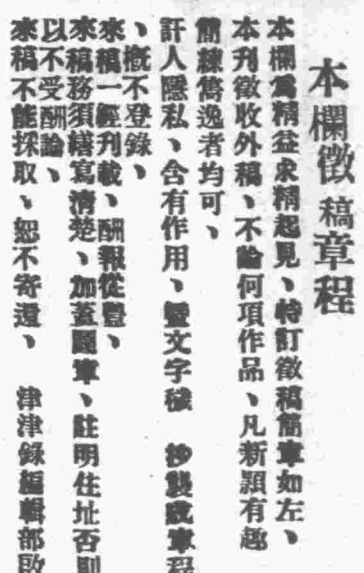 本欄徵稿章程
本欄爲精益求精起見、特訂徵稿簡章如左、
本刊徵收外稿、不論何項作品、凡新穎有趣
簡練雋逸者均可、
訐人隱私、含有作用、暨文字穢 抄襲成章程
、概不登錄、
來稿一經刊載、酬報從豐、
來稿務須繕寫清楚、加蓋圖章、註明住址否則
以不受酬論、
來稿不能採取、恕不寄還、 津津錄編輯部啟